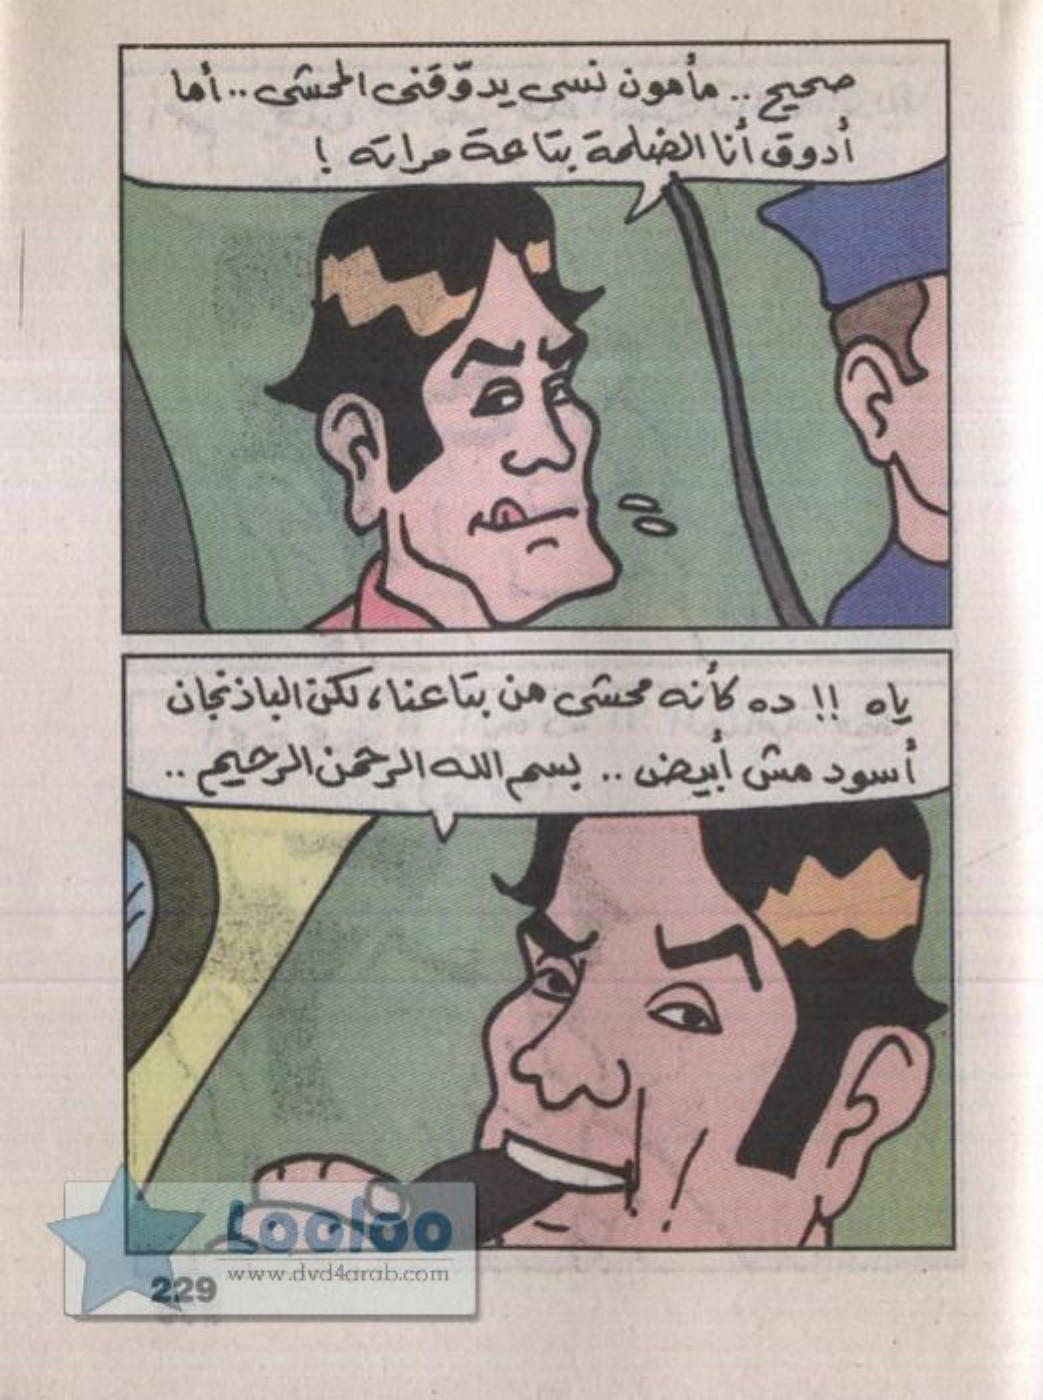 صحيح .. مأمون نسى يدوّقنى المحشى .. أما
أدوق أنا الضلمة بتاعة مراته !
ياه !! ده كأنه محشى من بتاعنا، لكن الباذنجان
أسود مش أبيض .. بسم الله الرحمن الرحيم ..
Looloo
www.dvd4arab.com
229